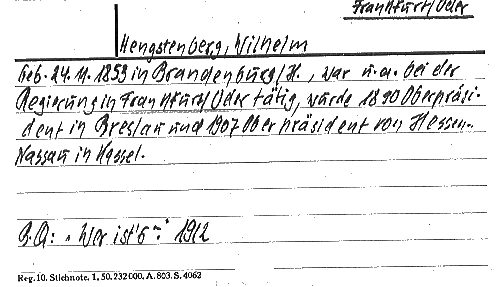 Frankfurt/Oder
Hengstenberg, Wilhelm
Geb. 24.11.1853 in Brandenburg/H., war u.a. bei der
Regierung in Frankfurt/Oder tätig, wurde 1890 Oberpräsi-
dent in Breslau und 1907 Oberpräsident von Hessen-
Nassau in Kassel.
B.Q.: "Wer ist's": 1912
Reg. 10. Stichnote. 1, 50. 232000. A. 803. S. 4062